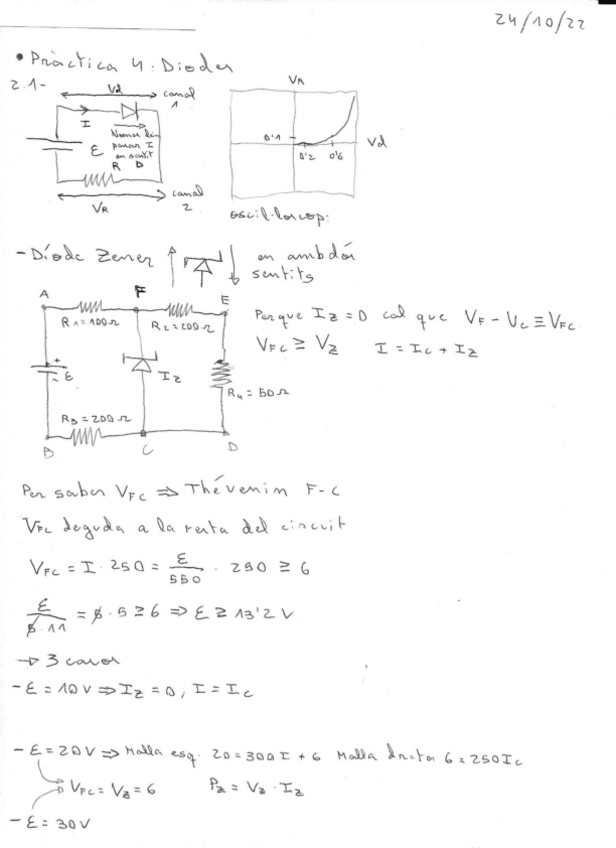 24/10/22
• Pràctica 4: Díodes
2.1-
Vd canal 1
I
Només deixa passar I en sentit
ε
R D
VR canal 2
VR
0'1
0'2 0'6
Vd
oscil·loscopi
- Díode Zener en ambdós sentits
A F E
R1=100Ω R2=200Ω
+
- ε
IZ
R4=50Ω
R3=200Ω
B C D
Perque IZ=0 cal que VF - VC ≡ VFC
VFC ≥ VZ I = IC + IZ
Per saber VFC ⇒ Thévenin F-C
VFC deguda a la resta del circuit
VFC = I · 250 = ε/550 · 250 ≥ 6
ε/5·11 = 5·5 ≥ 6 ⇒ ε ≥ 13'2 V
→ 3 casos
- ε = 10V ⇒ IZ = 0, I = IC
- ε = 20V ⇒ Malla esq. 20 = 300I + 6 Malla dreta 6 = 250IC
VFC = VZ = 6 PZ = VZ · IZ
- ε = 30V